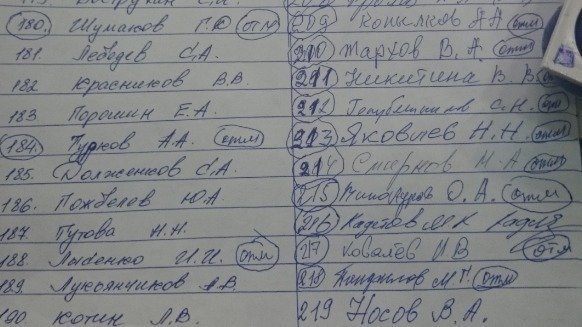 180. Шумаков Г.Ф отм
181. Лебедев С.А.
182 Красников В.В
183 Порошин Е.А.
184. Гурков А.А. отм
185. Долженков С.А
186. Пожбелев Ю.А
187. Гутова Н.Н.
188 Лысенко И.И. отм
189. Лукьянчиков А.В.
190 Котин Л.В.
209 Копилков А А отм
210 Жархов В.А. отм
211 Никитина В. В от
212 С.Н. отм
213 Яковлев Н.Н. отм
214 Смирнов Н.А отм
215 О.А. отм
216 Кадетов М К
217 Ковалёв И В отм
218 М.Г. отм
219 Носов В.А.